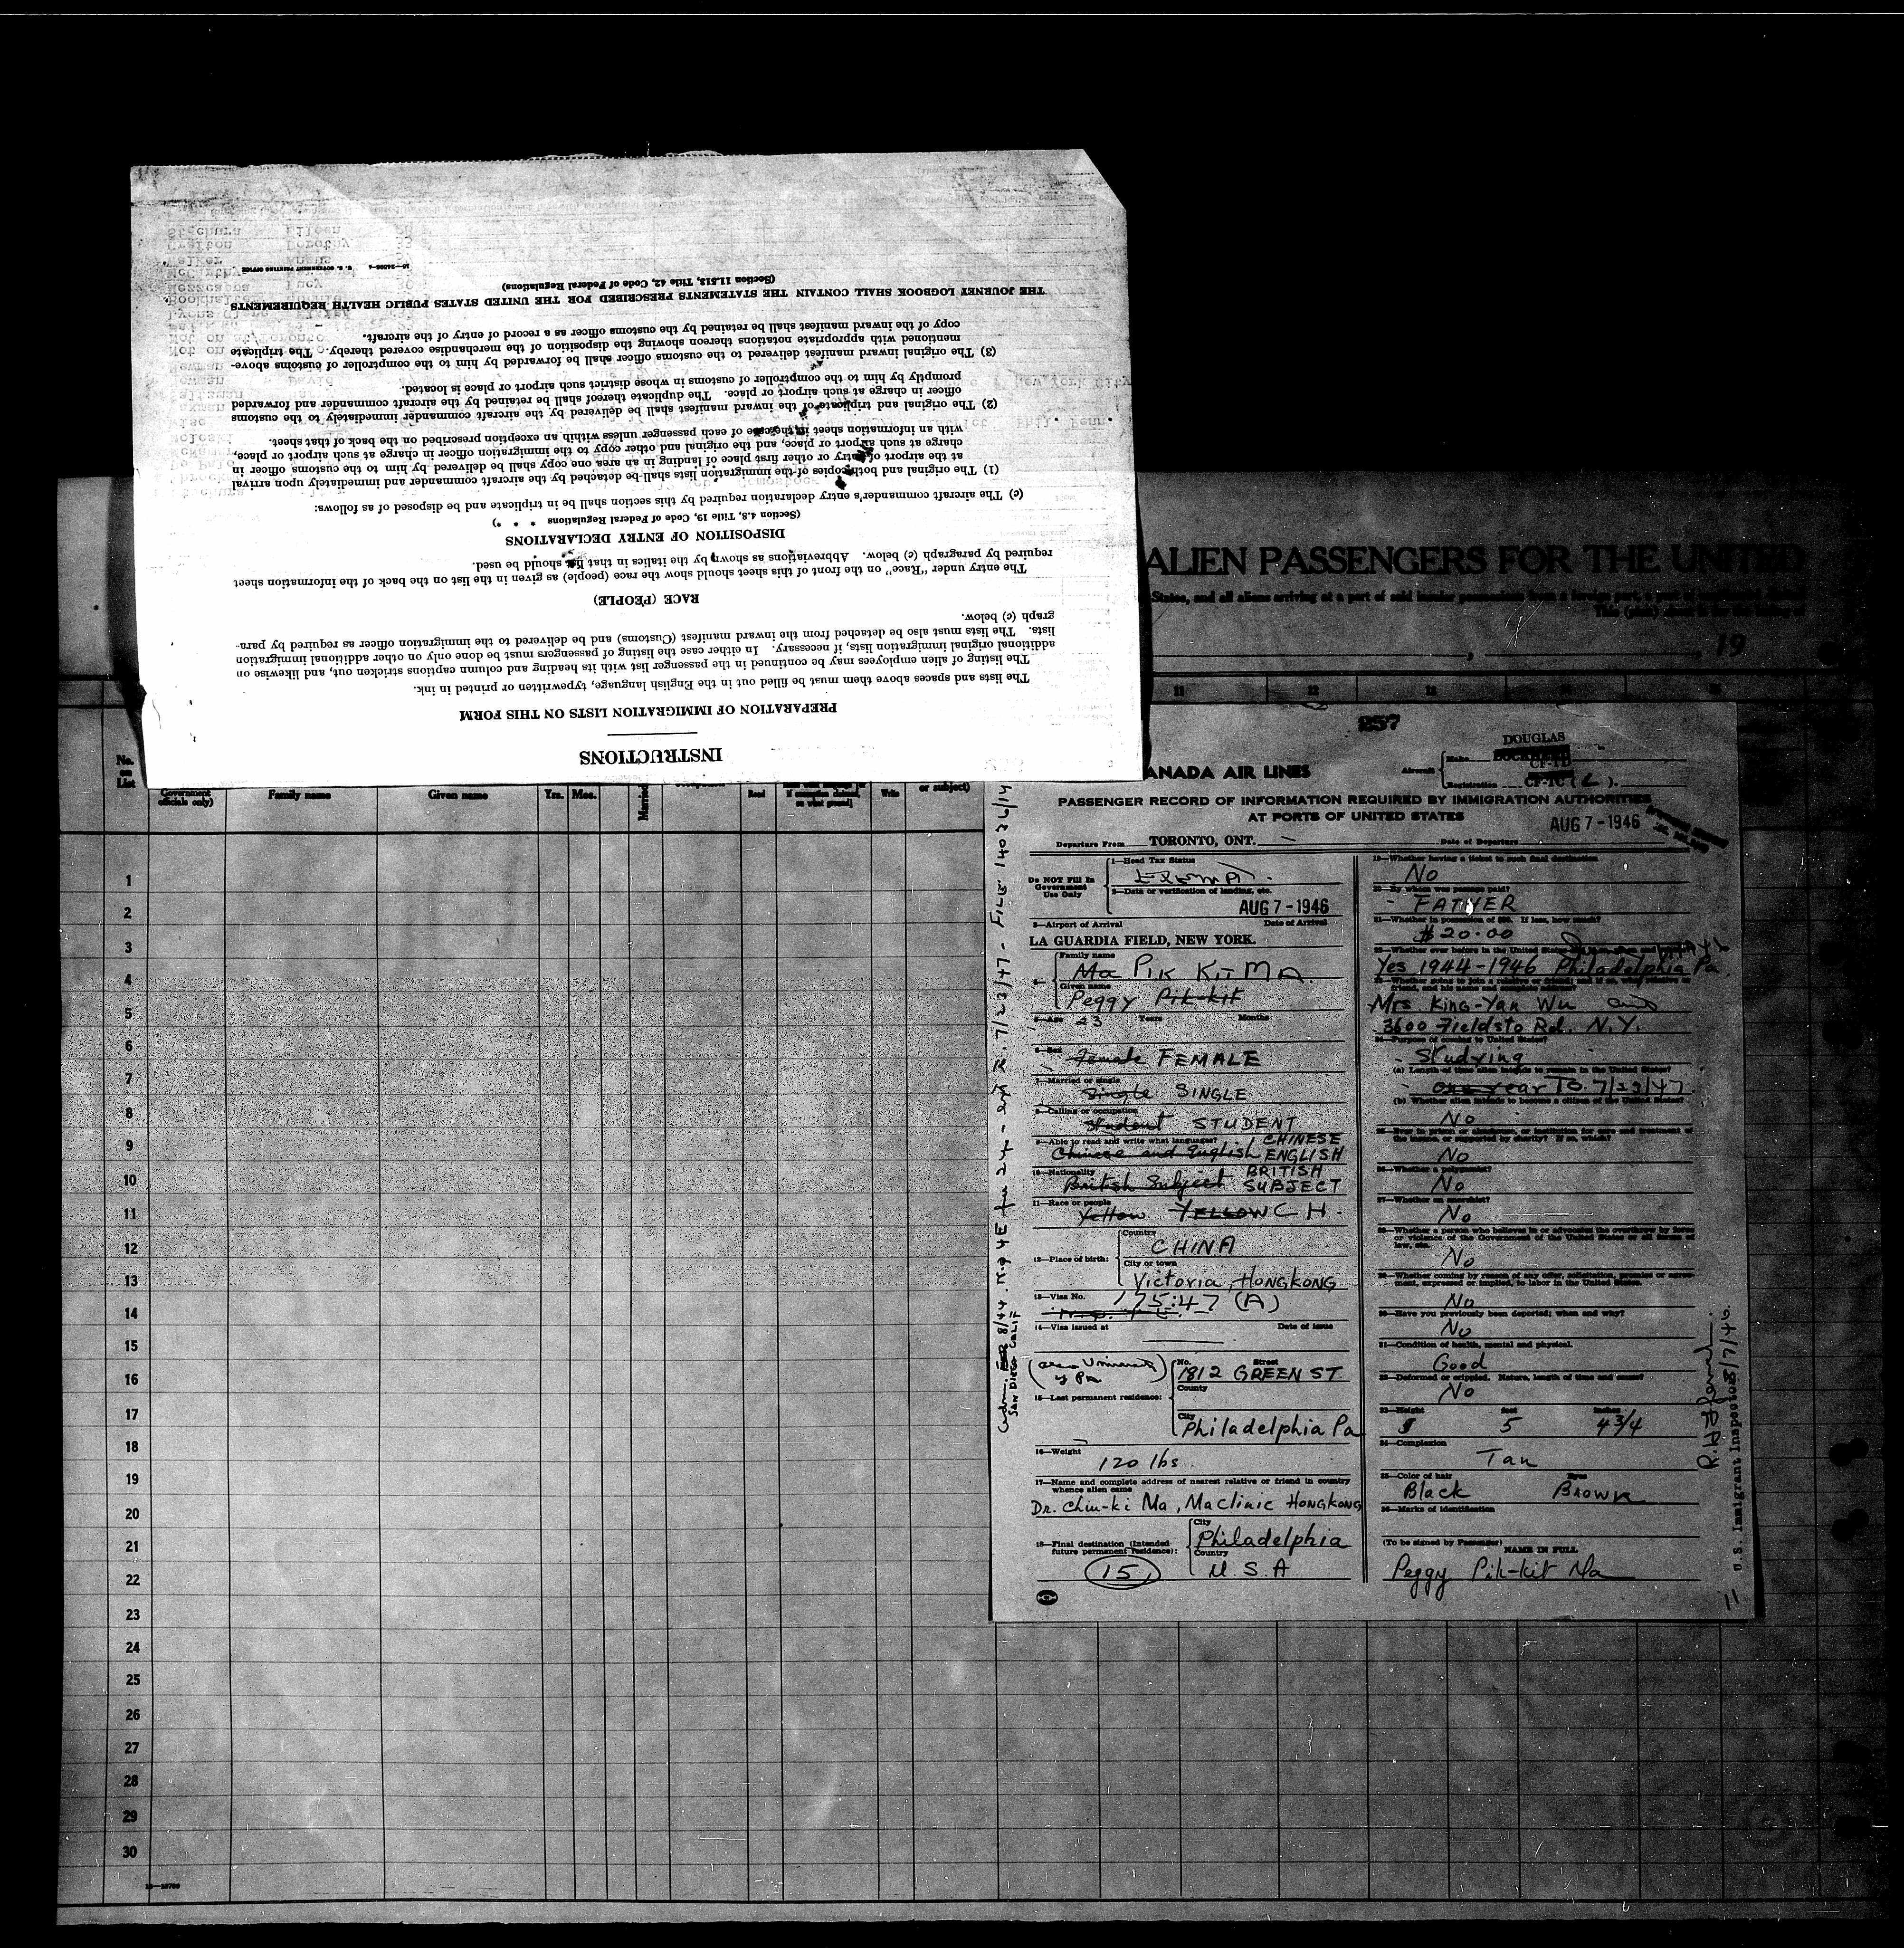 INSTRUCTIONS
PREPARATION OF IMMIGRATION LISTS ON THIS FORM
The lists and spaces above them must be filled out in the English language, typewritten or printed in ink.
The listing of alien employees may be continued in the passenger list with its heading and column captions stricken out, and likewise on
additional original immigration lists, if necessary. In either case the listing of passengers must be done only on other additional immigration
lists. The lists must also be detached from the inward manifest (Customs) and be delivered to the immigration officer as required by para-
graph (c) below.
RACE (PEOPLE)
The entry under "Race" on the front of this sheet should show the race (people) as given in the list on the back of the information sheet
required by paragraph (c) below. Abbreviations as shown by the italics in that list should be used.
DISPOSITION OF ENTRY DECLARATIONS
(Section 4.8, Title 19, Code of Federal Regulations * * *)
(c) The aircraft commander's entry declaration required by this section shall be in triplicate and be disposed of as follows:
(1) The original and both copies of the immigration lists shall be detached by the aircraft commander and immediately upon arrival
at the airport of entry or other first place of landing in an area one copy shall be delivered by him to the customs officer in
charge at such airport or place, and the original and other copy to the immigration officer in charge at such airport or place,
with an information sheet in the case of each passenger unless within an exception prescribed on the back of that sheet.
(2) The original and triplicate of the inward manifest shall be delivered by the aircraft commander immediately to the customs
officer in charge at such airport or place. The duplicate thereof shall be retained by the aircraft commander and forwarded
promptly by him to the comptroller of customs in whose district such airport or place is located.
(3) The original inward manifest delivered to the customs officer shall be forwarded by him to the comptroller of customs above-
mentioned with appropriate notations thereon showing the disposition of the merchandise covered thereby. The triplicate
copy of the inward manifest shall be retained by the customs officer as a record of entry of the aircraft.
THE JOURNEY LOGBOOK SHALL CONTAIN THE STATEMENTS PRESCRIBED FOR THE UNITED STATES PUBLIC HEALTH REQUIREMENTS
(Section 11.513, Title 42, Code of Federal Regulations)
U. S. GOVERNMENT PRINTING OFFICE
ALIEN PASSENGERS FOR THE UNITED
States, and all aliens arriving at a port of said insular possessions from a foreign port, a port of
19
11 12 13
No. on List
Government officials only)
Family name
Given name
Yrs. Mos.
Married
Read
Write
or subject)
1
2
3
4
5
6
7
8
9
10
11
12
13
14
15
16
17
18
19
20
21
22
23
24
25
26
27
28
29
30
257
ANADA AIR LINES
Aircraft
Make DOUGLAS
Registration CF-TC (L).
PASSENGER RECORD OF INFORMATION REQUIRED BY IMMIGRATION AUTHORITIES
AT PORTS OF UNITED STATES
AUG 7 - 1946
Departure From TORONTO, ONT.
Date of Departure
Do NOT Fill In Government Use Only
1—Head Tax Status
2—Data or verification of landing, etc.
AUG 7 - 1946
3—Airport of Arrival
Date of Arrival
LA GUARDIA FIELD, NEW YORK.
Family name
Ma PIK KIT MA
Given name
Peggy Pik-kit
5—Age 23 Years Months
6—Sex Female FEMALE
7—Married or single
Single SINGLE
8—Calling or occupation
Student STUDENT
9—Able to read and write what languages? CHINESE
Chinese and English ENGLISH
10—Nationality BRITISH
British Subject SUBJECT
11—Race or people
Yellow YELLOW CH.
12—Place of birth:
Country
CHINA
City or town
Victoria, HONGKONG
13—Visa No. 175:47 (A)
14—Visa issued at
Date of issue
15—Last permanent residence:
No. Street
1812 GREEN ST.
County
City
Philadelphia Pa
16—Weight
120 lbs.
17—Name and complete address of nearest relative or friend in country
whence alien came
Dr. Chiu-ki Ma, Maclinic HONGKONG
18—Final destination (Intended
future permanent residence):
City
Philadelphia
Country
U.S.A
15
19—Whether having a ticket to such final destination
No
20—By whom was passage paid?
FATHER
21—Whether in possession of $50. If less, how much?
$20.00
22—Whether ever before in the United States
Yes 1944-1946 Philadelphia Pa
23—Whether going to join a relative or friend; and if so, what relative or
friend, and his name and complete address?
Mrs. King-Yan Wu
3600 Fieldsto Rd. N.Y.
24—Purpose of coming to United States?
Studying
(a) Length of time alien intends to remain in the United States?
one year To 7/23/47
(b) Whether alien intends to become a citizen of the United States?
No
25—Ever in prison or almshouse, or institution for care and treatment of
the insane, or supported by charity? If so, which?
No
26—Whether a polygamist?
No
27—Whether an anarchist?
No
28—Whether a person who believes in or advocates the overthrow by force
or violence of the Government of the United States or all forms of
law, etc.
No
29—Whether coming by reason of any offer, solicitation, promise or agree-
ment, expressed or implied, to labor in the United States.
No
30—Have you previously been deported; when and why?
No
31—Condition of health, mental and physical.
Good
32—Deformed or crippled. Nature, length of time and cause?
No
33—Height feet inches
5 4 3/4
34—Complexion
Tan
35—Color of hair Eyes
Black Brown
36—Marks of identification
(To be signed by Passenger)
NAME IN FULL
Peggy Pik-kit Ma
U.S. Immigrant Inspector 8/7/46.
SAN DIEGO CALIF